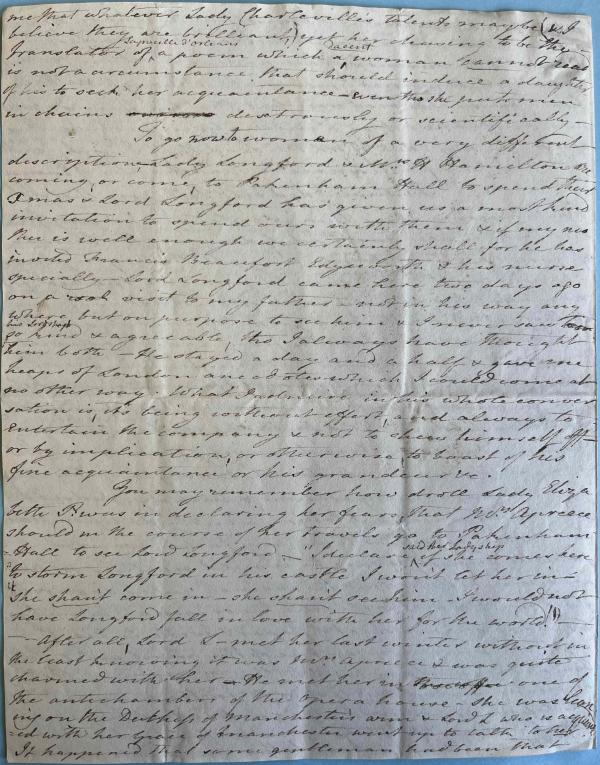 me that whatever Lady Charleville's talents may be (& I
believe they are brilliant) yet her chusing to be the
la pucelle d'orleans decent
translator of a poem which a woman cannot read
is not a circumstance that should induce a daughter
of his to seek her acquaintance – even tho she puts men
in chains dextrously or scientifically –
To go now to women of a very different
description, Lady Longford & Mrs H Hamilton are
coming, or come, to Pakenham Hall to spend their
Xmas & Lord Longford has given us a most kind
invitation to spend ours with them & if my
is well enough we certainly shall for he has
invited Francis Beaufort Edgeworth & his nurse
specially – Lord Longford came here two days ago
on a visit to my father – not in his way any
where but on purpose to see him & I never saw
his Lordship
so kind & agreeable, tho I always have thought
him both – He stayed a day and a half & gave me
heaps of London anecdotes which I could come at
no other way. What I admire in his whole conver
sation is, its being without effort, and always to
entertain the company & not to shew himself off –
or by implication, or otherwise to boast of his
fine acquaintance or his grandeur &c.
You may remember how droll Lady Eliza
beth P. was in declaring her fears that Mrs Apreece
should in the course of her travels go to Pakenham
said her Ladyship
Hall to see Lord Longford – "I declare if she comes here
to storm Longford in his castle I won't let her in –
She shan't come in – she shan't see him. I would not
have Longford fall in love with her for the world!"
– After all, Lord L– met her last winter without in
the least knowing it was Mrs Apreece & was quite
charmed with her – He met her in one of
the antichambers of the opera house – she was lean
ing on the Duchess of Manchester's arm & Lord L who is acquaint
-ed with her grace of Manchester went up to talk to her
It happened that some gentleman had been that